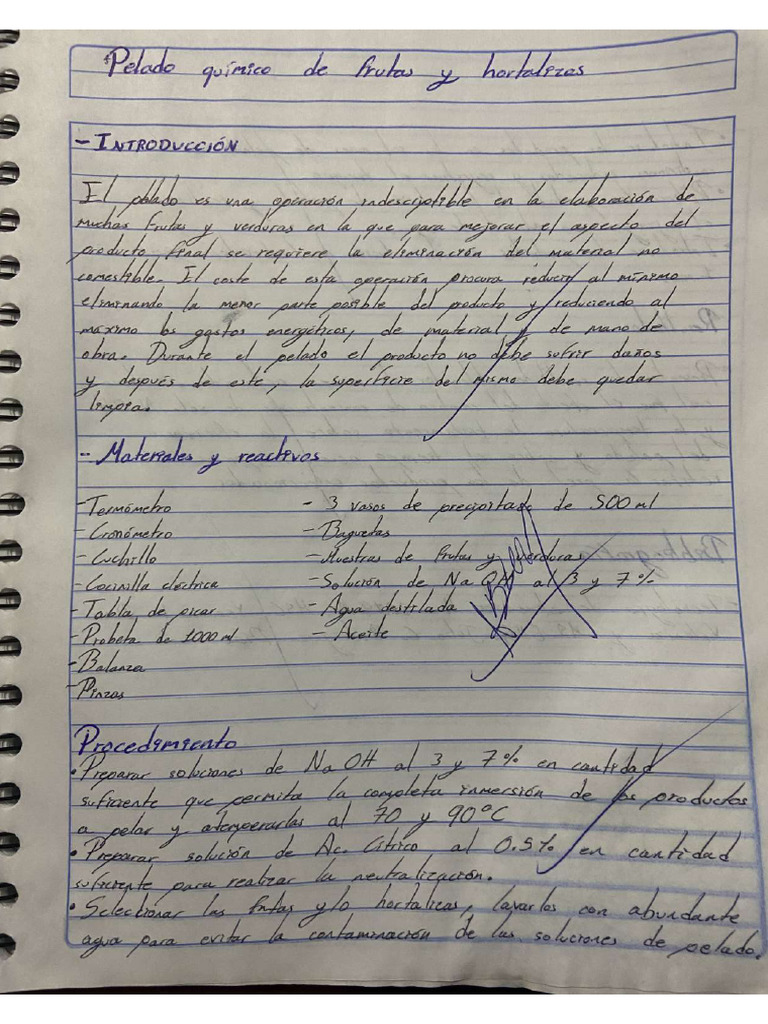 Pelado químico de frutas y hortalizas
- INTRODUCCIÓN
El peblado es una operación indescriptible en la elaboración de
muchas frutas y verduras en la que para mejorar el aspecto del
producto final se requiere la eliminación del material no
comestible. El coste de esta operación procura reducir al mínimo
eliminando la menor parte posible del producto y reduciendo al
máximo los gastos energéticos, de material y de mano de
obra. Durante el pelado el producto no debe sufrir daños
y después de este, la superficie del mismo debe quedar
limpia.
- Materiales y reactivos
- Termómetro
- Cronómetro
- Cuchillo
- Cocinilla eléctrica
- Tabla de picar
- Probeta de 1000 ml
- Balanza
- Pinzas
- 3 vasos de precipitado de 500 ml
- Baguetas
- Muestras de frutas y verduras
- Solución de NaOH al 3 y 7%
- Agua destilada
- Aceite
Procedimiento
• Preparar soluciones de NaOH al 3 y 7% en cantidad
suficiente que permita la completa inmersión de los productos
a pelar y atemperarlas al 70 y 90°C
• Preparar solución de Ac. Cítrico al 0.5% en cantidad
suficiente para realizar la neutralización.
• Selectionar las frutas y/o hortalizas, lavarlos con abundante
agua para evitar la contaminación de las soluciones de pelado.